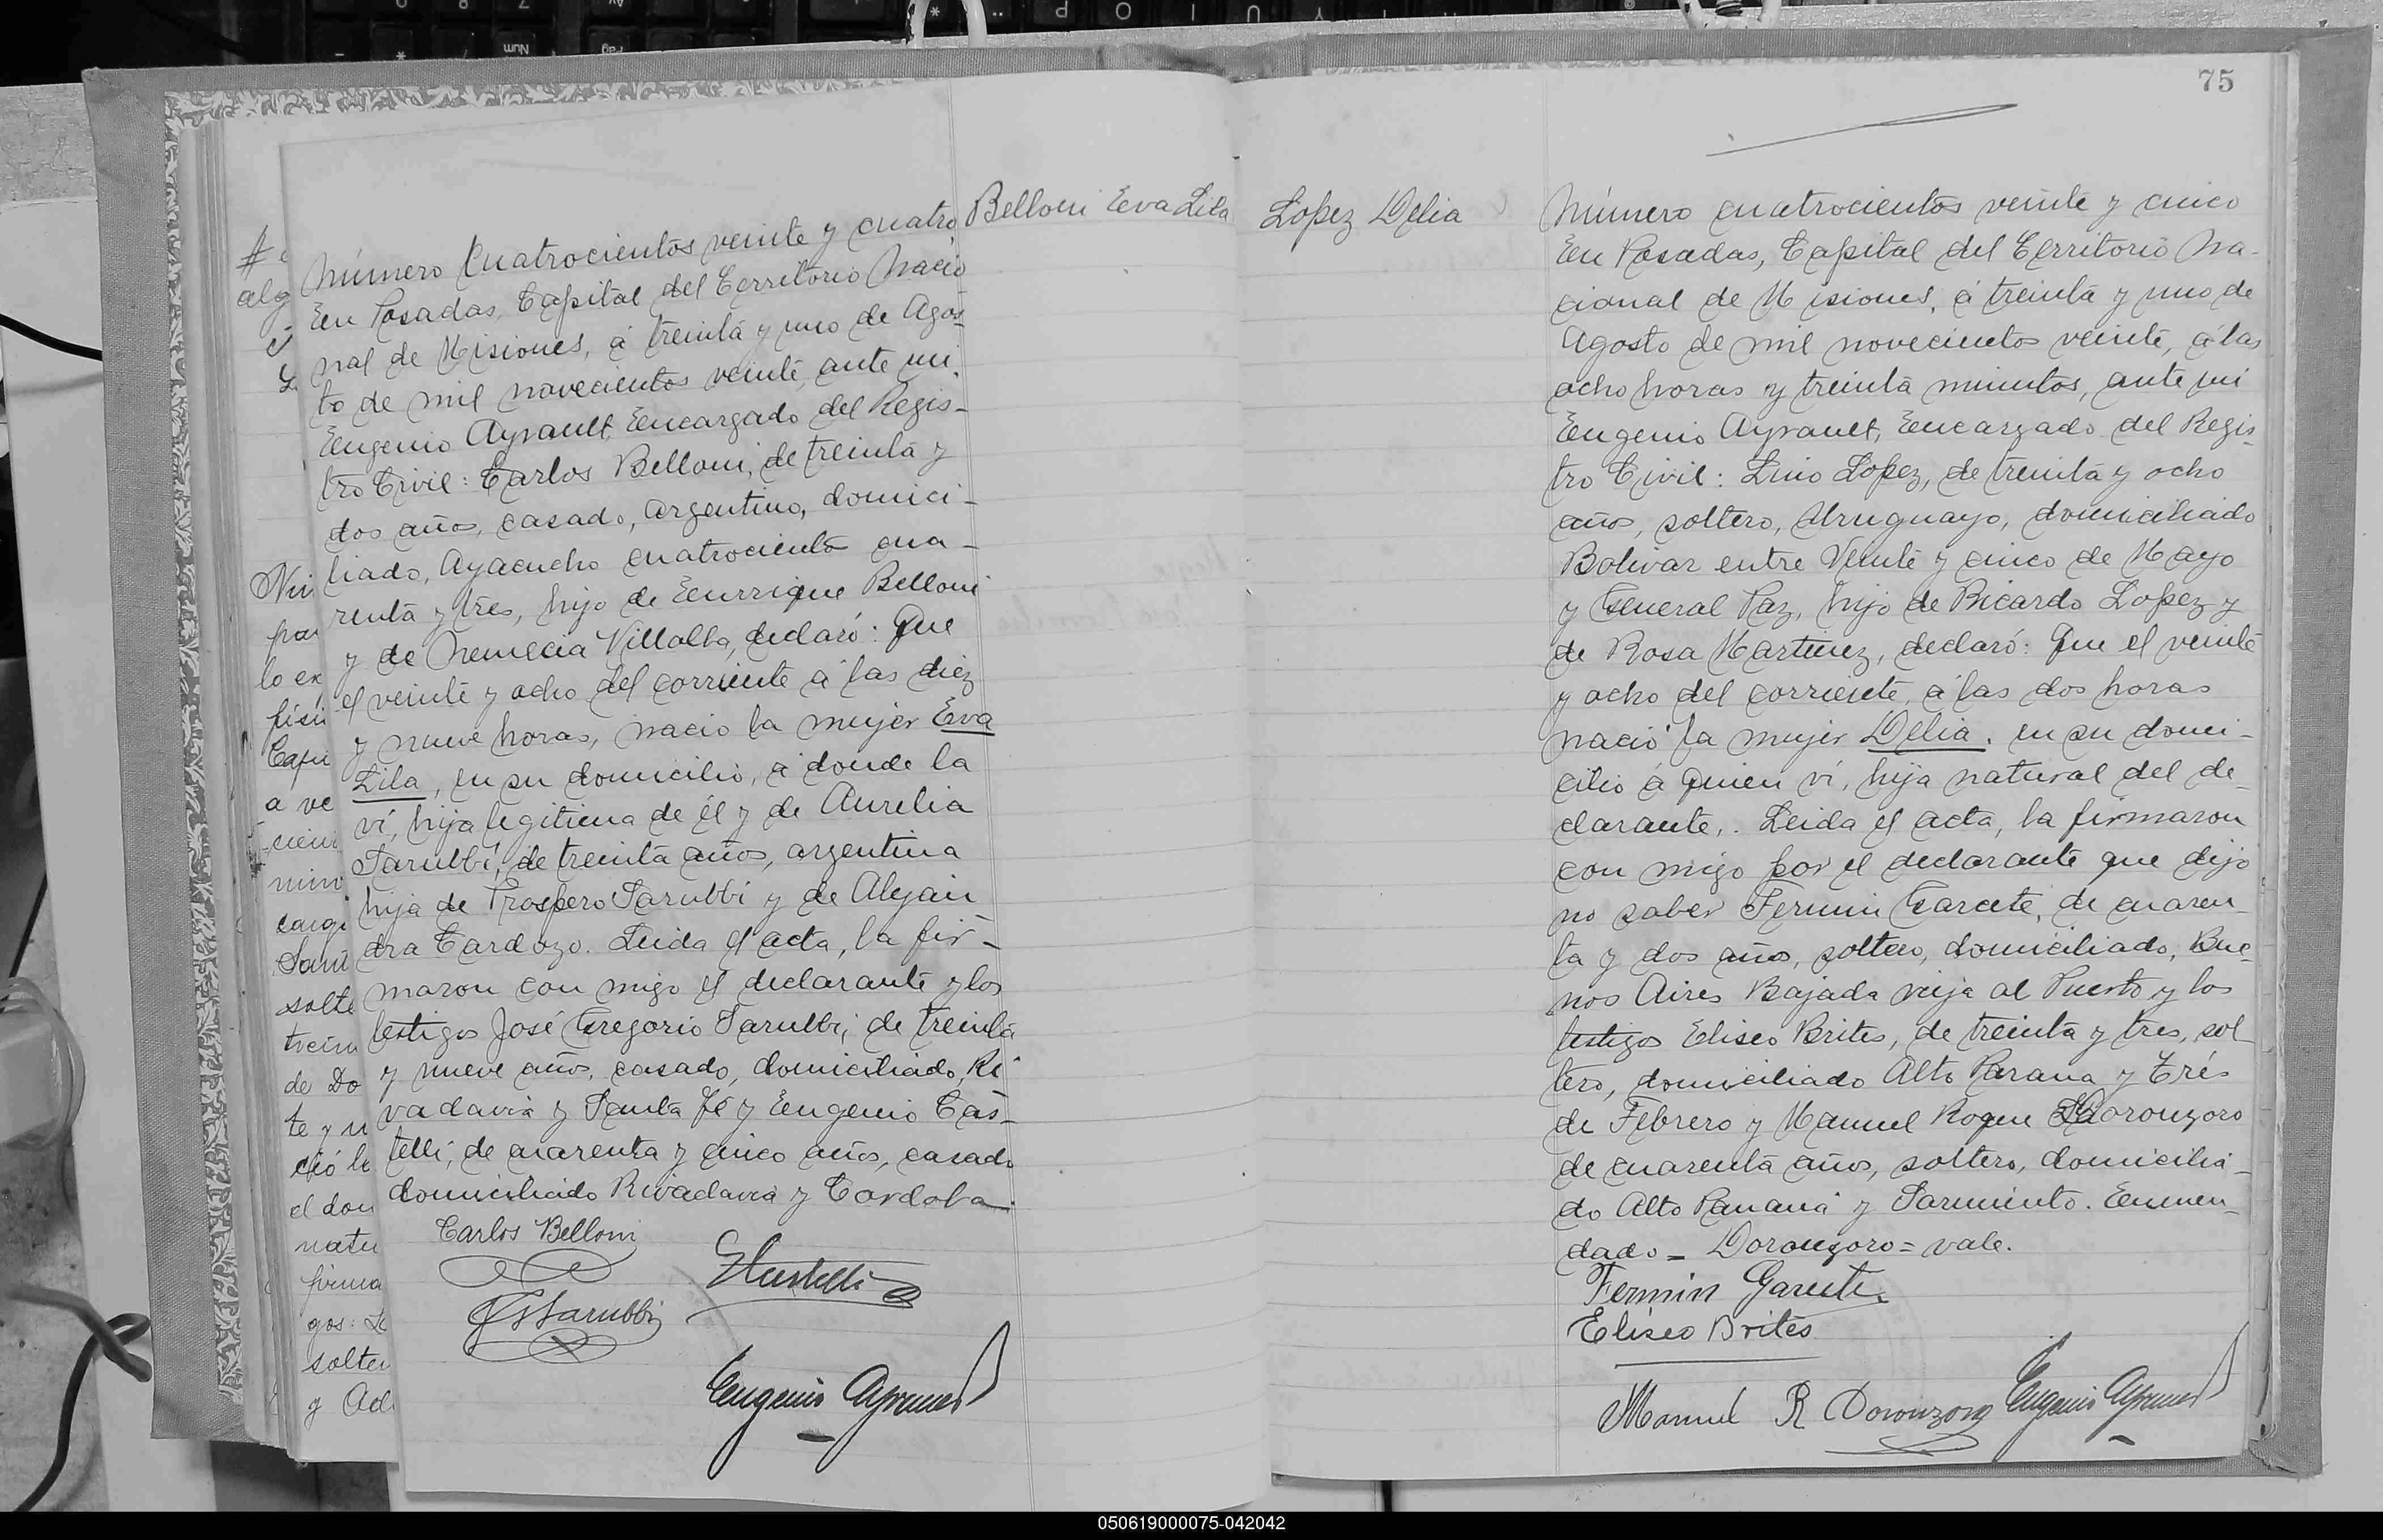 Belloni Eva Lila
Número Cuatrocientos veinte y cuatro
En Posadas, Capital del Territorio Nacio
nal de Misiones, á treinta y uno de Agos-
to de mil novecientos veinte, ante mi.
Eugenio Ayrault, Encargado del Regis-
tro Civil: Carlos Belloni, de treinta y
dos años, casado, argentino, domici-
liado, Ayacucho cuatrocientos cua-
renta y tres, hijo de Enrrique Belloni
y de Nemecia Villalba, declaró: Que
el veinte y ocho del corriente á las diez
y nueve horas, nacio la mujer Eva
Lila, en su domicilio, á donde la
ví, hija legitima de él y de Aurelia
Sarubbi, de treinta años, argentina
hija de Prospero Sarubbi y de Alejan
dra Cardozo. Leida el acta, la fir-
maron con migo el declarante y los
testigos José Gregorio Sarubbi, de treinta
y nueve años, casado, domiciliado, Ri
vadavia y Santa Fé y Eugenio Cas-
telli, de cuarenta y cinco años, casado
domiciliado Rivadavia y Cordoba.
Carlos Belloni
Eugenio Ayrault
75
Lopez Delia
Número cuatrocientos veinte y cinco
En Posadas, Capital del Territorio Na-
cional de Misiones, á treinta y uno de
Agosto de mil novecientos veinte, á las
ocho horas y treinta minutos, ante mi
Eugenio Ayrault, Encargado del Regis-
tro Civil: Lino Lopez, de treinta y ocho
años, soltero, Uruguayo, domiciliado
Bolivar entre Veinte y cinco de Mayo
y General Paz, hijo de Ricardo Lopez y
de Rosa Martinez, declaró: Que el veinte
y ocho del corriente, á las dos horas
nació la mujer Delia, en su domi-
cilio á quien ví, hija natural del de-
clarante,. Leida el acta, la firmaron
con migo por el declarante que dijo
no saber Fermin Garcete, de cuaren-
ta y dos años, soltero, domiciliado, Bue-
nos Aires Bajada vieja al Puerto y los
testigos Eliseo Brites, de treinta y tres, sol
tero, domiciliado Alto Parana y Trés
de Febrero y Manuel Roque Doronzoro
de cuarenta años, soltero, domicilia-
do Alto Paraná y Sarmiento. Enmen-
dado - Doronzoro = vale.
Fermin Garcete.
Eliseo Brites
Manuel R Doronzoro Eugenio Ayrault
050619000075-042042